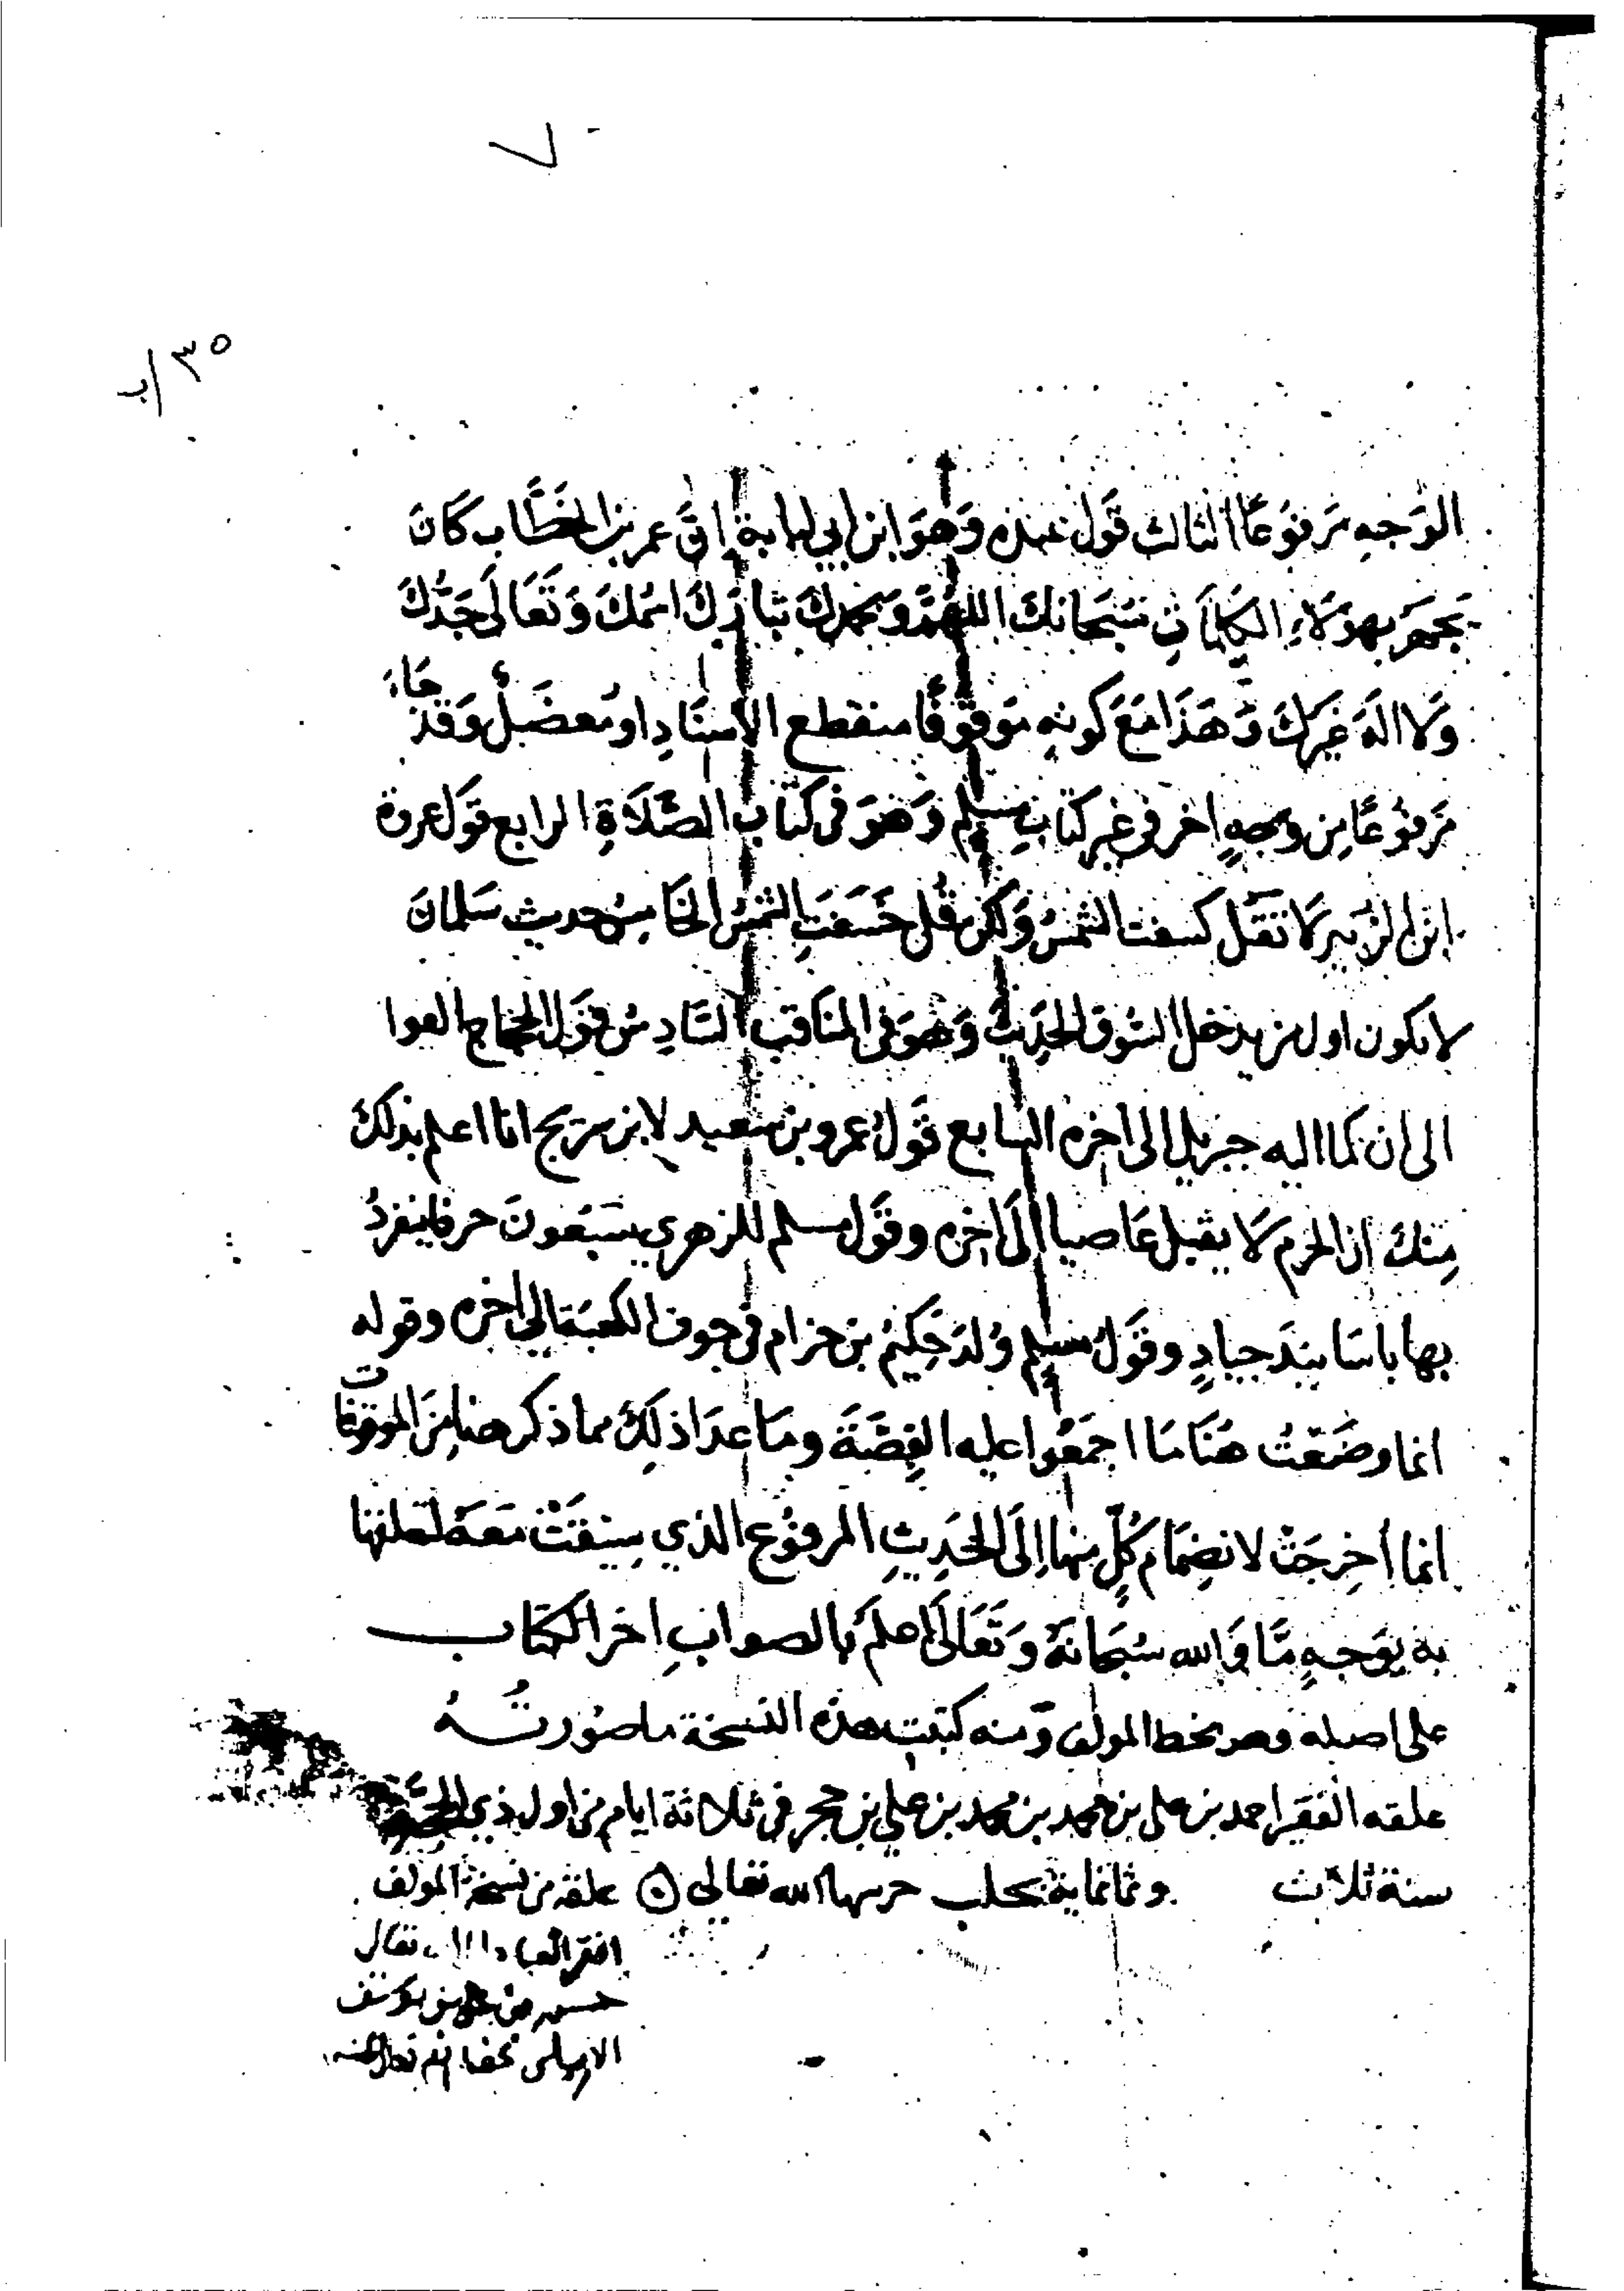 ٧٠
٣٥/ب
الوَجهِ مَرفوُعًا الثالث قَول عبده وَهوَ ابن ابي لبابة انَّ عمر بن الخطَّاب كَانَ
يَجهَر بهوَلاءِ الكَلمَاتِ سُبحَانَكَ اللهُمَّ وبَحمدكَ تبارَكَ اسمُكَ وَتَعَالَى جَدُّكَ
وَلا الَهَ غَيركَ وَهَذَا مَعَ كونهِ مَوقوُفًا منقطع الاسنَادِ او مُعضَلٌ وَقَد جَاءَ
مَرفوُعًا مِن وَجهٍ اخر في غير كتَابِ مسلم وَهوَ في كتَاب الصَّلاَةِ الرابع قوَل عروة
ابن الزبَير لاَ تقُل كسفت الشمسُ وَلكن قُل خَسَفَتِ الشمسُ الخَامِسُ حديث سَلمَانَ
لا تكون اول من يدخل السُوق الحَدِيثَ وَهوَ في المنَاقب السَّادِسُ قوَل الحجاج الفوا
الى ان كما الفه جبريل الى اخره السابع قَولُ عمرو بن سَعيد لابن شريح انا اعلم بذلك
مِنكَ ان الحرم لاَ يقبل عَاصيا الَى اخره وقَول مسلم للزهري تسعُونَ حرفا ينفردُ
بها باسَانيدَ جيادٍ وقَولُ مسلم وُلدَ حَكيمُ بن حزام في جوف الكعبَة الي اخره وقوله
انما وضَعَتُ هُنَا مَا اجمَعُوا عليه القِصَّةَ ومَا عدَا ذلِكَ مما ذكر هنا مِنَ الموقوفات
انما أخرِجَت لانضِمَام كُلٍّ منها الَى الحَدِيثِ المرفوُع الذي سِيقَتْ مَعَهُ لتعلقها
به بوَجهٍ مَّا وَالله سُبحَانَهُ وَتَعَالَى اعلَم بالصوابِ اخر الكتاب
على اصله وهو بخط المولف ومنه كتبت هذه النسخة ما صُورتُهُ
علقه الفقير احمد بن علي بن محمد بن محمد بن علي بن حجر في ثلاثة ايام من اول ذي الحجَّة
سنة ثلاث وثمانماية بحلب حرسها الله تعالى ٥ علقه من نسخة المولف
افقر العباد الى الله تعالى
حسن بن علي بن يوسف
الاربلي عفا الله تعالى عنه